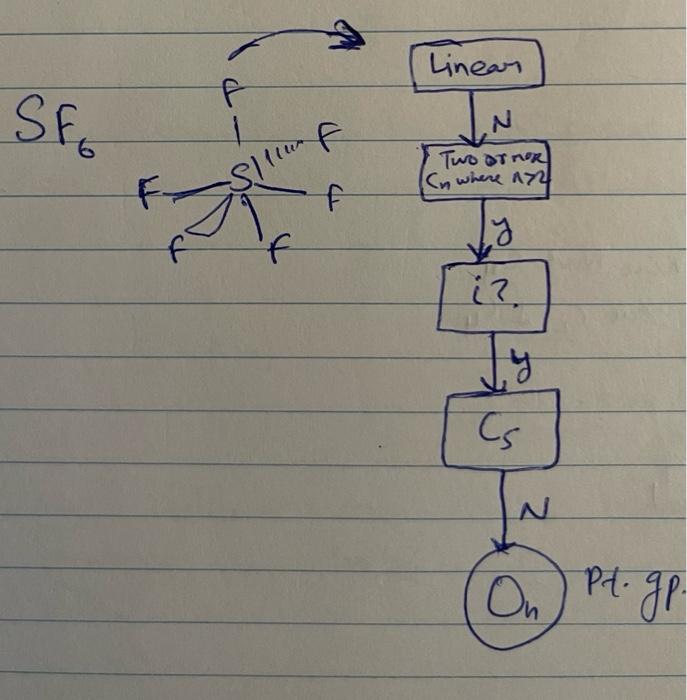 SF₆
F
F
S
F
F
F
F
Linear
N
Two or more
Cn where n>2
y
i?
y
C5
N
Oh
Pt. gp.